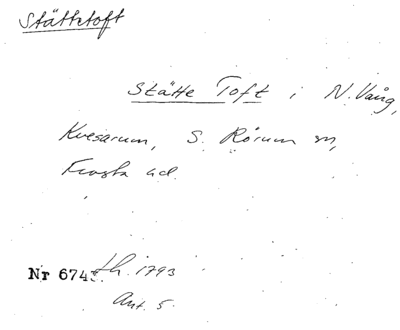 Stättetoft
Stätte Toft i N. Vång,
Kvesarum, S. Rörum sn,
Frosta hd.
Nr 674 th. 1793
Ant. 5.